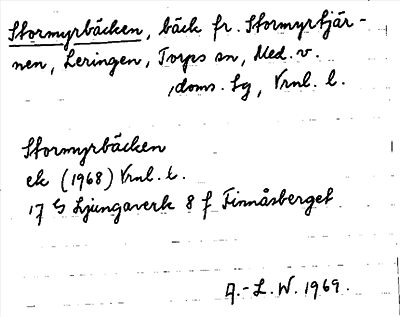 Stormyrbäcken, bäck fr. Stormyrtjär-
nen, Leringen, Torps sn, Med. v.
doms. lg, Vrnl. l.
Stormyrbäcken
ek (1968) Vrnl. k.
17 G Ljungaverk 8 f Finnåsberget
A.-L. W. 1969.